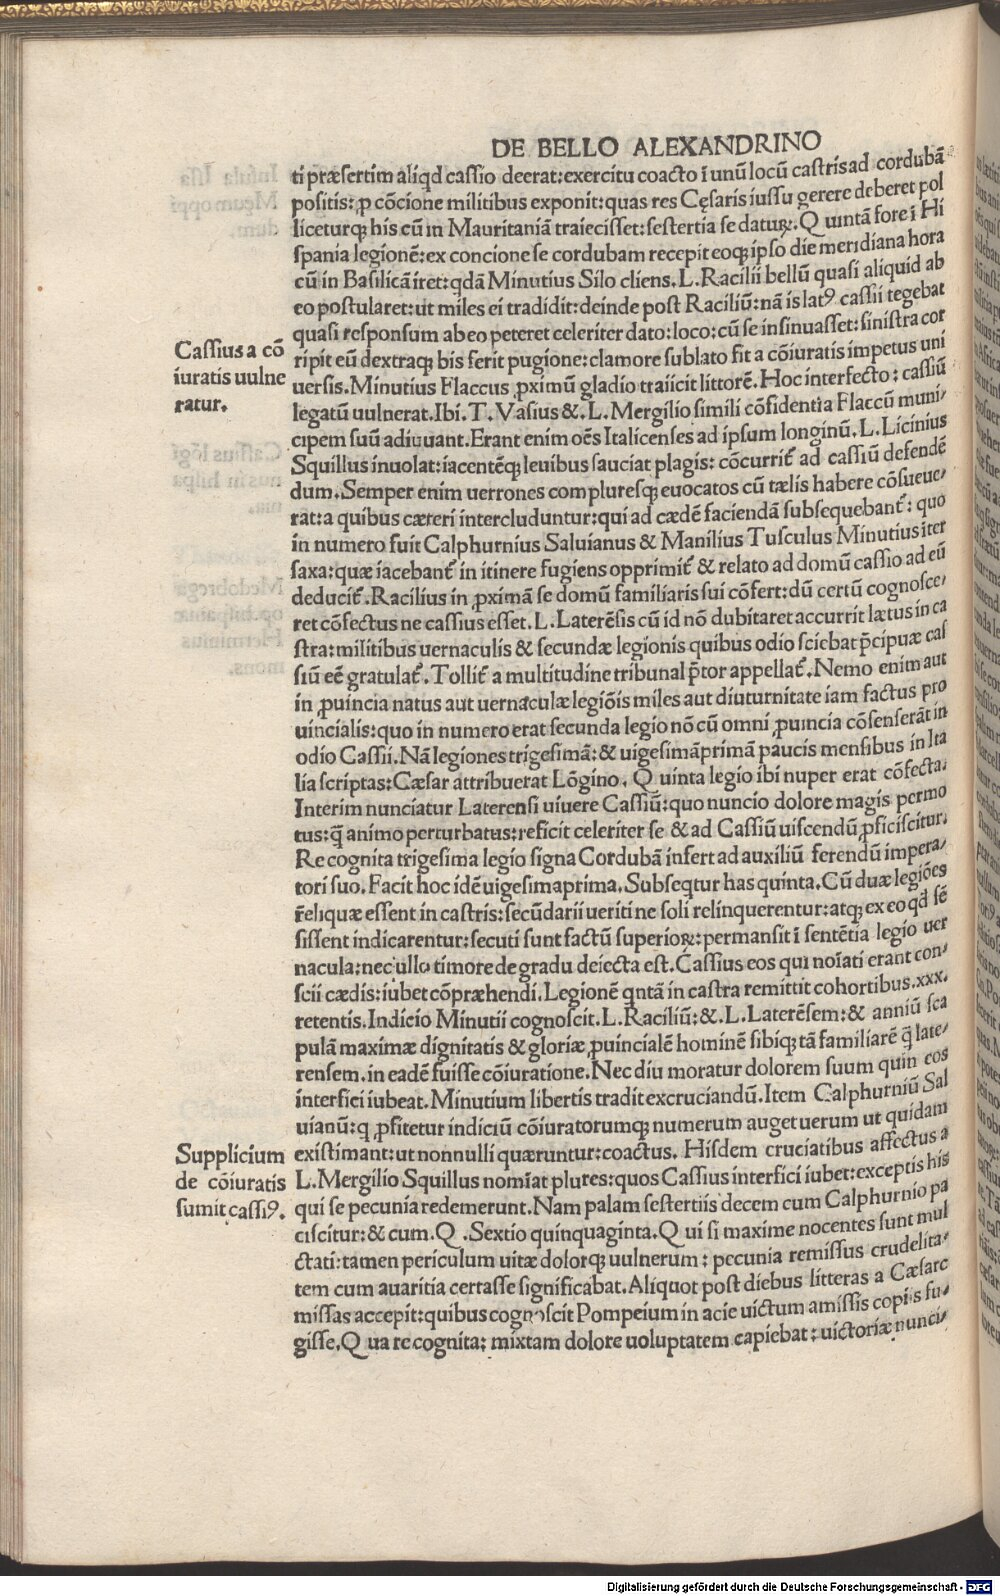 DE BELLO ALEXANDRINO
ti præsertim aliqd cassio deerat: exercitu coacto ī unū locū castris ad cordubā
positis: ꝓ cōcione militibus exponit: quas res Cęsaris iussu gerere deberet pol
liceturqꝫ his cū in Mauritaniā traiecisset: sestertia se daturꝝ. Quintā fore ī Hi
spania legionē: ex concione se cordubam recepit eoqꝫ ipso die meridiana hora
cū in Basilicā iret: qdā Minutius Silo cliens. L. Racilii bellū quasi aliquid ab
eo postularet: ut miles ei tradidit: deinde post Raciliū: nā is latꝰ cassii tegebat
quasi responsum ab eo peteret celeriter dato: loco: cū se insinuasset: sinistra cor
ripit eū dextraqꝫ bis ferit pugione: clamore sublato fit a cōiuratis impetus uni
Cassius a cō
iuratis uulne
ratur.
uersis. Minutius Flaccus ꝓximū gladio traiicit littorē. Hoc interfecto: cassiū
legatū uulnerat. Ibi. T. Vasius &. L. Mergilio simili cōfidentia Flaccū muni/
cipem suū adiuuant. Erant enim oēs Italicenses ad ipsum longinū. L. Licinius
Squillus inuolat: iacentēqꝫ leuibus sauciat plagis: cōcurrit̄ ad cassiū defendē
dum. Semper enim uerrones compluresqꝫ euocatos cū tælis habere cōsueue/
rat: a quibus cæteri intercluduntur: qui ad cædē faciendā subsequebant̄: quo
in numero fuit Calphurnius Saluianus & Manilius Tusculus Minutius iter
saxa: quæ iacebant̄ in itinere fugiens opprimit̄ & relato ad domū cassio ad eū
deducit̄. Racilius in ꝓximā se domū familiaris sui cōfert: dū certū cognosce/
ret cōfectus ne cassius esset. L. Laterēsis cū id nō dubitaret accurrit lætus in ca
stra: militibus uernaculis & secundæ legionis quibus odio sciebat p̄cipuæ cas
siū eē gratulat̄. Tollit̄ a multitudine tribunal p̄tor appellat̄. Nemo enim aut
in ꝓuincia natus aut uernaculæ legiōis miles aut diuturnitate iam factus pro
uincialis: quo in numero erat secunda legio nō cū omni ꝓuincia cōsenserāt in
odio Cassii. Nā legiones trigesimā: & uigesimāprimā paucis mensibus in Ita
lia scriptas: Cæsar attribuerat Lōgino. Quinta legio ibi nuper erat cōfecta.
Interim nunciatur Laterensi uiuere Cassiū: quo nuncio dolore magis permo
tus: q̄ animo perturbatus: reficit celeriter se & ad Cassiū uiscendū ꝓficiscitur.
Re cognita trigesima legio signa Cordubā infert ad auxiliū ferendū impera/
tori suo. Facit hoc idē uigesimaprima. Subseqtur has quinta. Cū duæ legiōes
r̄eliquæ essent in castris: secūdarii ueriti ne soli relinquerentur: atqꝫ ex eo qd sē
sissent indicarentur: secuti sunt factū superioꝝ: permansit ī sentētia legio uer
nacula: nec ullo timore de gradu deiecta est. Cassius eos qui noīati erant con/
scii cædis: iubet cōpræhendi. Legionē qntā in castra remittit cohortibus. xxx.
retentis. Indicio Minutii cognoscit. L. Raciliū: &. L. Laterēsem: & anniū sca
pulā maximæ dignitatis & gloriæ ꝓuincialē hominē sibiqꝫ tā familiarē q̄ late/
rensem. in eadē fuisse cōiuratione. Nec diu moratur dolorem suum quin eos
interfici iubeat. Minutium libertis tradit excruciandū. Item Calphurniū Sal
uianū: q ꝓfitetur indiciū cōiuratorumqꝫ numerum auget uerum ut quidam
Supplicium
de cōiuratis
sumit cassiꝰ.
existimant: ut nonnulli quæruntur: coactus. Hisdem cruciatibus affectus a
L. Mergilio Squillus nomīat plures: quos Cassius interfici iubet: exceptis his
qui se pecunia redemerunt. Nam palam sestertiis decem cum Calphurnio pa
ciscitur: & cum. Q. Sextio quinquaginta. Qui si maxime nocentes sunt mul
ctati: tamen periculum uitæ dolorqꝫ uulnerum: pecunia remissus crudelita/
tem cum auaritia certasse significabat. Aliquot post diebus litteras a Cæsare
missas accepit: quibus cognoscit Pompeium in acie uictum amissis copiis fu/
gisse. Qua re cognita: mixtam dolore uoluptatem capiebat: uictoriæ nunci/
Digitalisierung gefördert durch die Deutsche Forschungsgemeinschaft - DFG